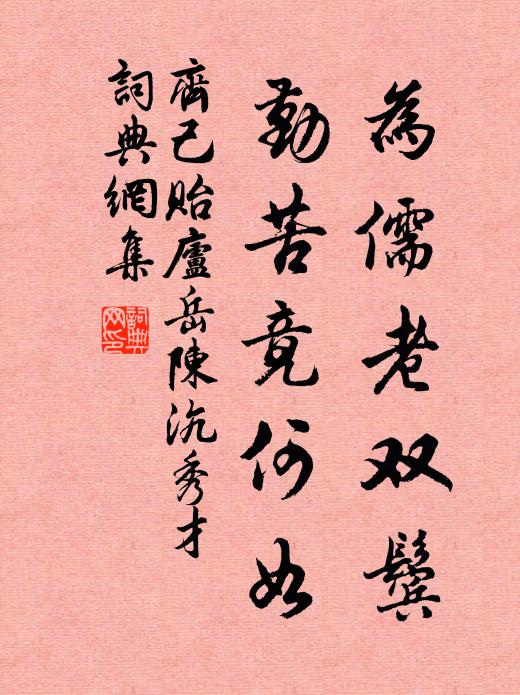 為儒老双鬢
勤苦竟何如
齊己貽廬岳陳沆秀才
詞典網集
詞典网印